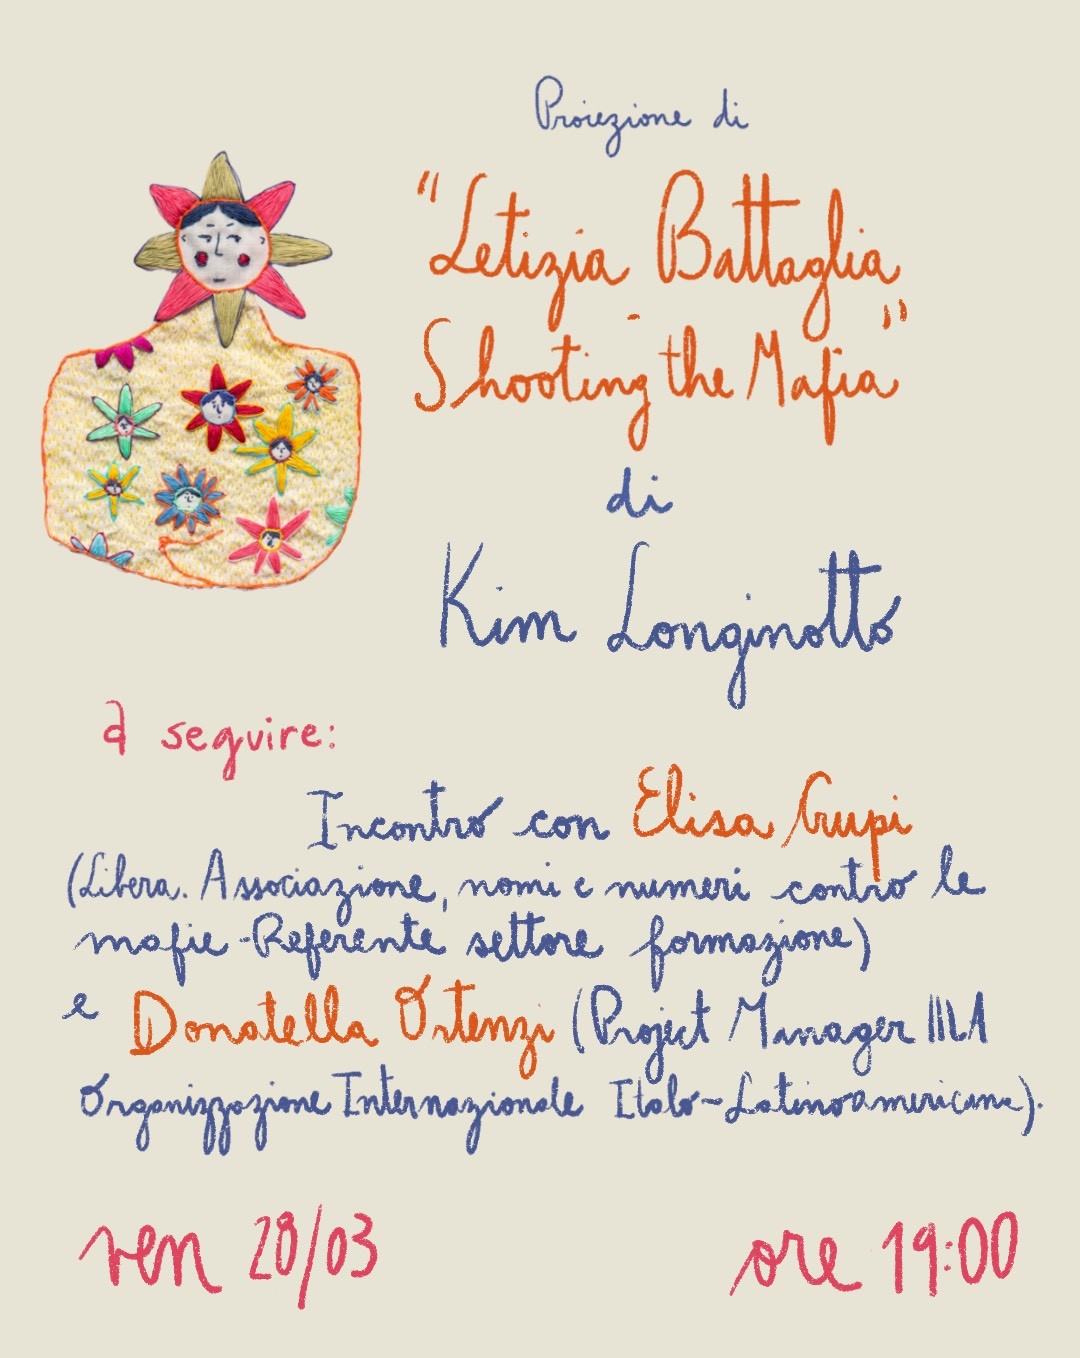 Proiezione di
"Letizia Battaglia
Shooting the Mafia"
di
Kim Longinotto
a seguire:
Incontro con Elisa
(Libera. Associazione, nomi e numeri contro le
mafie - Referente settore formazione)
e Donatella Ortenzi (Project Manager IILA
Organizzazione Internazionale Italo-Latinoamericana).
ven 28/03
ore 19:00